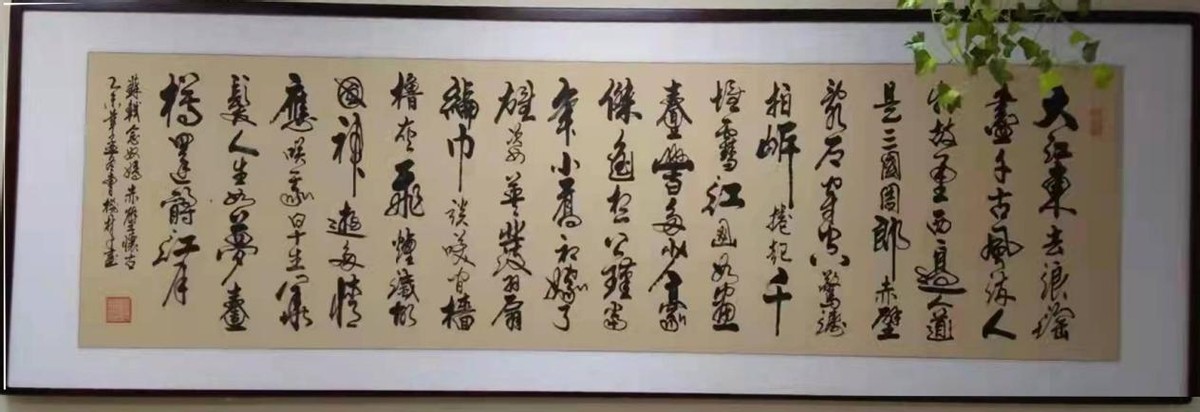 大江東去浪淘
盡千古風流人
物故壘西邊人道
是三國周郎赤壁
亂石穿空驚濤
拍岸捲起千
堆雪江如畫
壹時多少豪
傑遙想公瑾當
年小喬初嫁了
雄姿英發羽扇
綸巾談笑間檣
櫓灰飛煙滅故
國神遊多情
應笑我早生華
髮人生如夢壹
樽還酹江月
蘇軾念奴嬌赤壁懷古